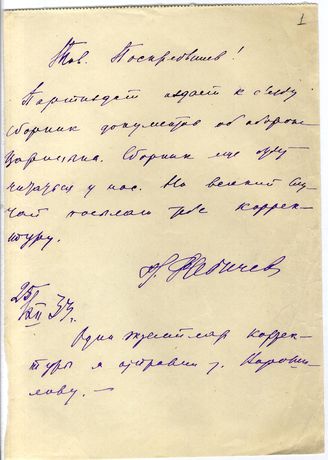 1
Тов. Поскребышев!
Партиздат издает к съезду
сборник документов об обороне
Царицына. Сборник еще будут
читать у нас. На всякий слу-
чай посылаю Вам коррек-
туру.
Н. Рабичев
25/XII 33 г.
Один экземпляр коррек-
туры я отправил т. Вороши-
лову. —